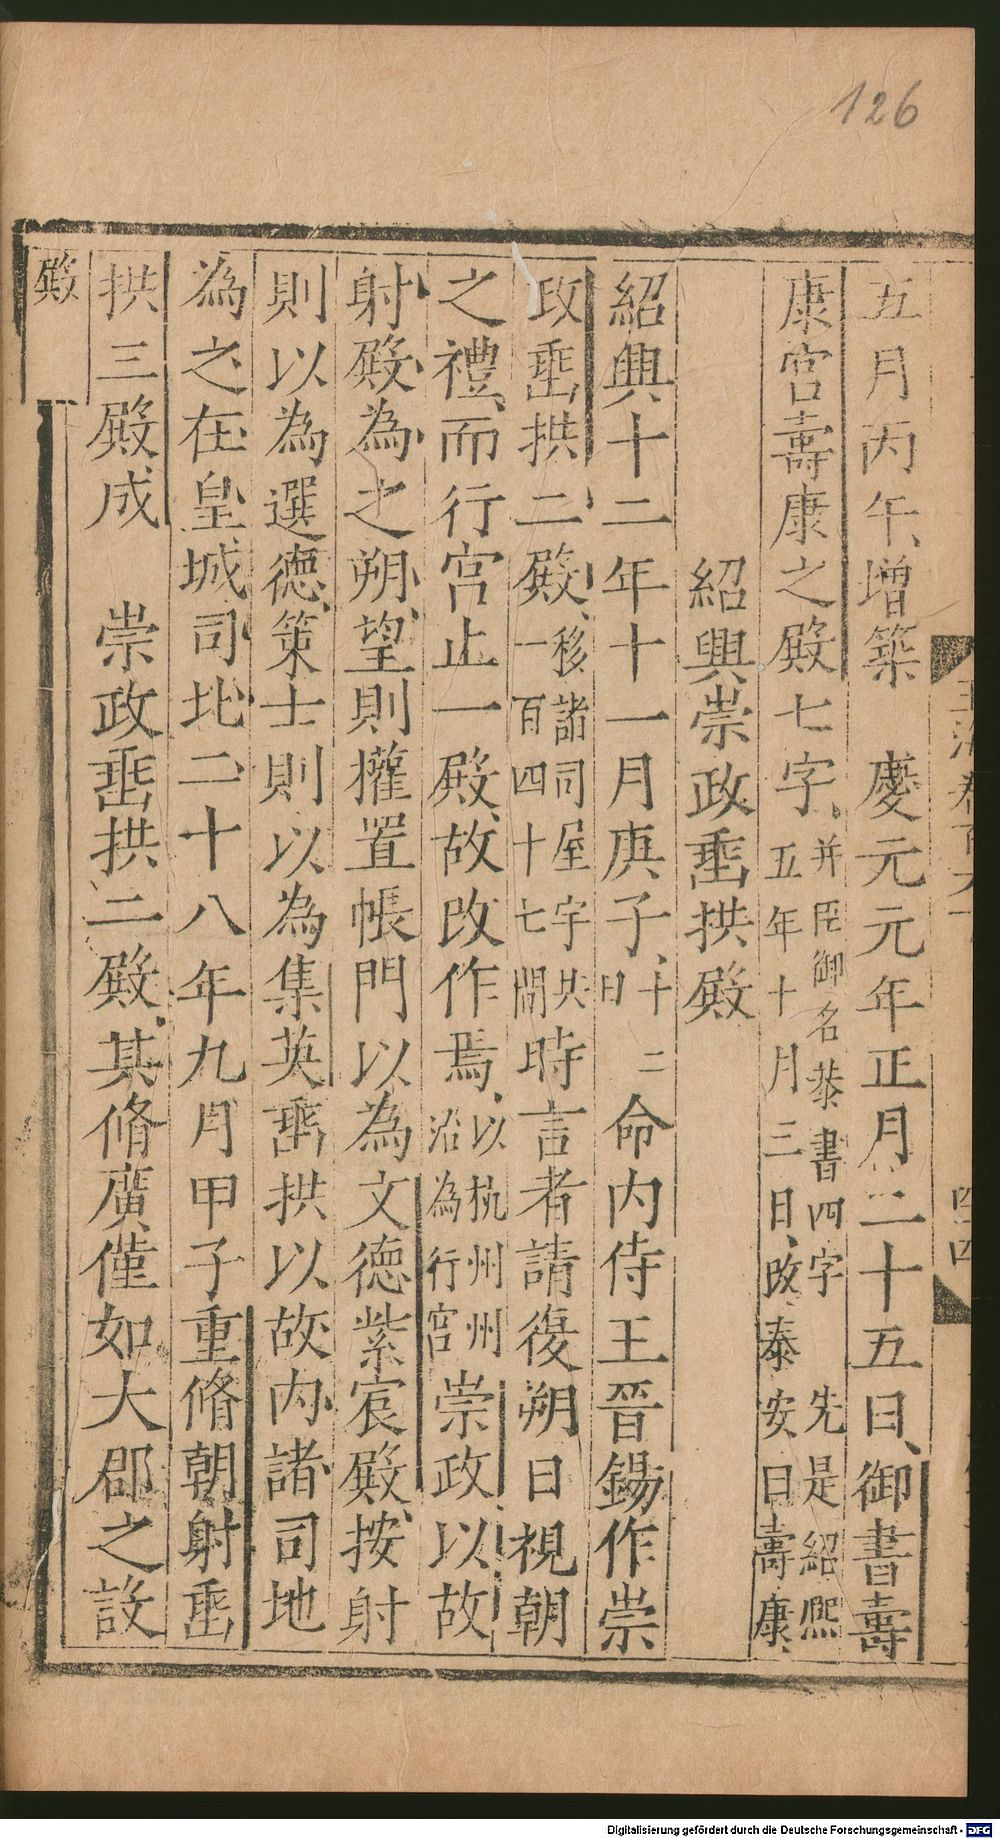 126
五月丙午增築　慶元元年正月二十五日御書壽
康宮壽康之殿七字并臣御名恭書四字　先是紹熙五年十月三日改泰安曰壽康
紹興崇政垂拱殿
紹興十二年十一月庚子十二日命内侍王晉錫作崇
政垂拱二殿移諸司屋宇共一百四十七間時言者請復朔日視朝
之禮而行宮止一殿故改作焉以杭州州治為行宮崇政以故
射殿為之朔望則權置帳門以為文德紫宸殿按射
則以為選德策士則以為集英垂拱以故内諸司地
為之在皇城司北二十八年九月甲子重脩朝射垂
拱三殿成　崇政垂拱二殿其脩廣僅如大郡之設
殿
Digitalisierung gefördert durch die Deutsche Forschungsgemeinschaft - DFG